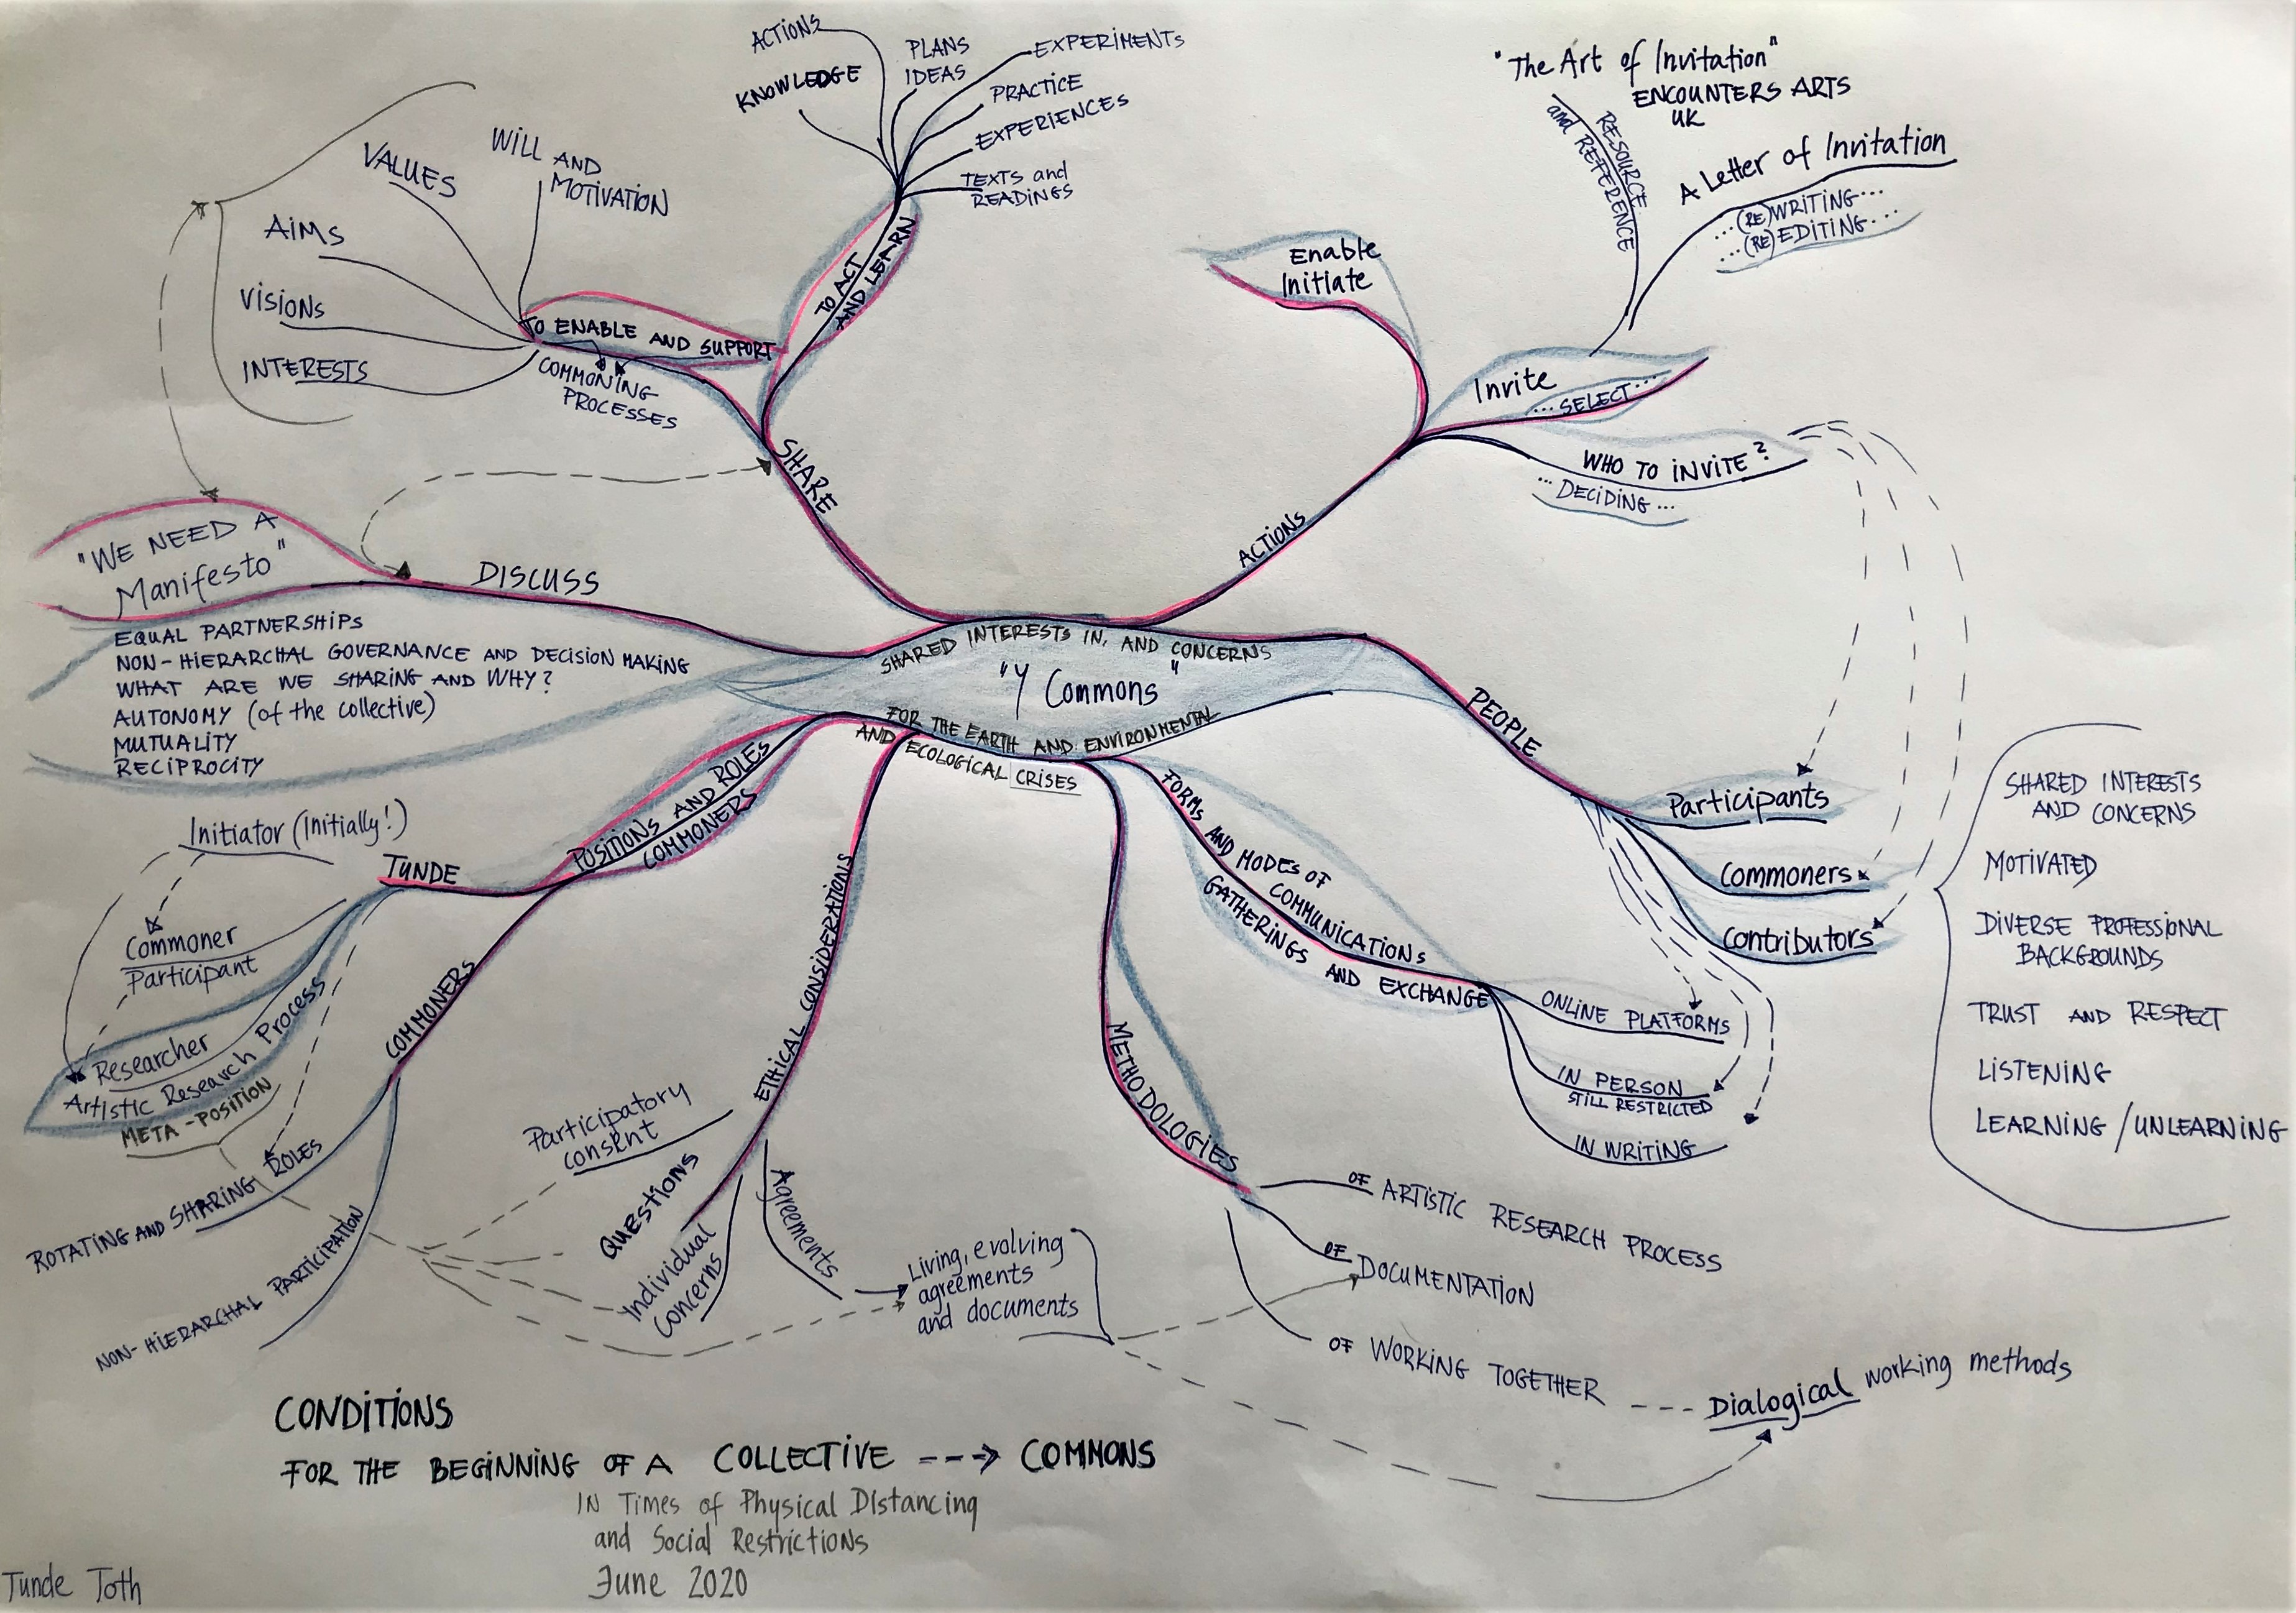 ACTIONS
KNOWLEDGE
PLANS
IDEAS
EXPERIMENTS
PRACTICE
EXPERIENCES
TEXTS and
READINGS
TO ACT
AND LEARN
VALUES
WILL AND
MOTIVATION
AIMS
VISIONS
INTERESTS
TO ENABLE AND SUPPORT
COMMONING
PROCESSES
SHARE
"The Art of Invitation"
ENCOUNTERS ARTS
UK
RESOURCE
and REFERENCE
A Letter of Invitation
...(RE)WRITING...
...(RE)EDITING...
Enable
Initiate
Invite
...SELECT...
WHO TO INVITE?
...DECIDING...
ACTIONS
"WE NEED A
Manifesto"
DISCUSS
EQUAL PARTNERSHIPS
NON-HIERARCHAL GOVERNANCE AND DECISION MAKING
WHAT ARE WE SHARING AND WHY?
AUTONOMY (of the collective)
MUTUALITY
RECIPROCITY
SHARED INTERESTS IN, AND CONCERNS
"Y Commons"
FOR THE EARTH AND ENVIRONMENTAL
AND ECOLOGICAL CRISES
PEOPLE
Participants
Commoners
Contributors
SHARED INTERESTS
AND CONCERNS
MOTIVATED
DIVERSE PROFESSIONAL
BACKGROUNDS
TRUST AND RESPECT
LISTENING
LEARNING / UNLEARNING
POSITIONS AND ROLES
COMMONERS
Initiator (initially!)
TUNDE
Commoner
Participant
Researcher
Artistic Research Process
META-POSITION
COMMONERS
ROTATING AND SHARING ROLES
NON-HIERARCHAL PARTICIPATION
ETHICAL CONSIDERATIONS
Participatory
consent
QUESTIONS
Individual
Concerns
Agreements
Living, evolving
agreements
and documents
FORMS AND MODES OF
COMMUNICATIONS
GATHERINGS AND EXCHANGE
ONLINE PLATFORMS
IN PERSON
STILL RESTRICTED
IN WRITING
METHODOLOGIES
OF ARTISTIC RESEARCH PROCESS
OF DOCUMENTATION
OF WORKING TOGETHER --- Dialogical working methods
CONDITIONS
FOR THE BEGINNING OF A COLLECTIVE ---> COMMONS
IN Times of Physical Distancing
and Social Restrictions
June 2020
Tunde Toth